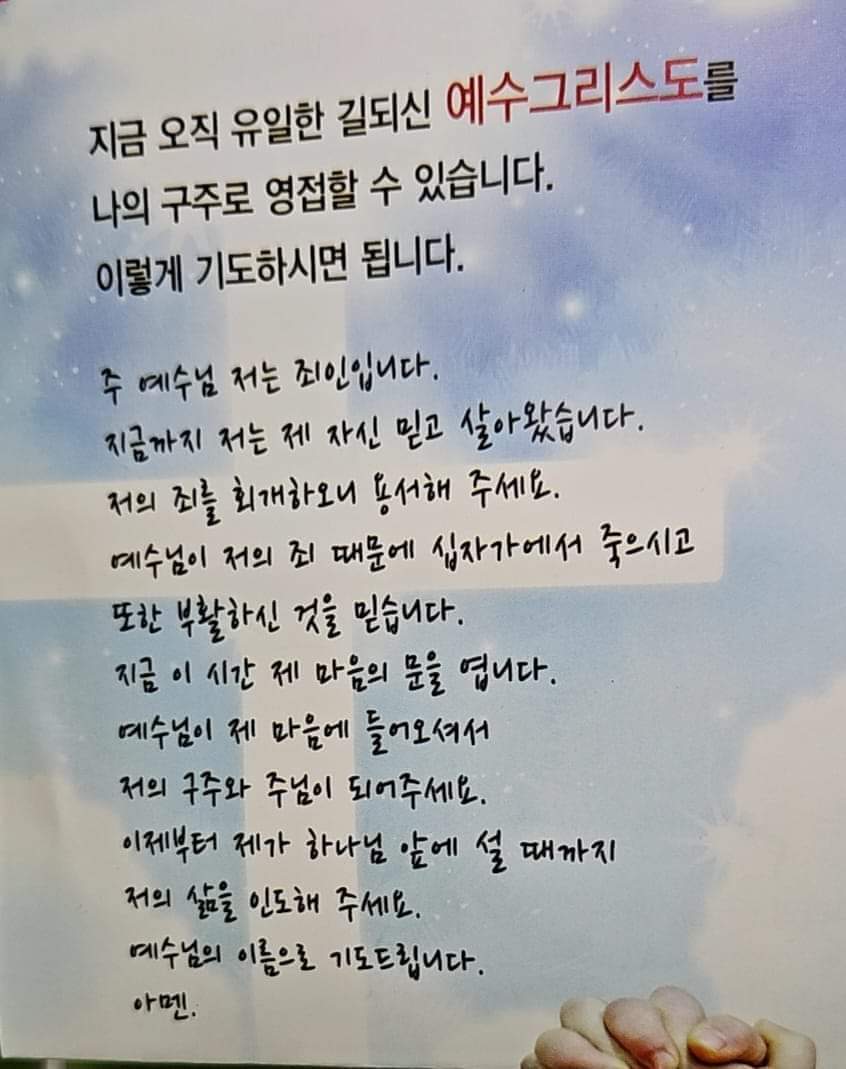 지금 오직 유일한 길되신 예수그리스도를
나의 구주로 영접할 수 있습니다.
이렇게 기도하시면 됩니다.
주 예수님 저는 죄인입니다.
지금까지 저는 제 자신 믿고 살아왔습니다.
저의 죄를 회개하오니 용서해 주세요.
예수님이 저의 죄 때문에 십자가에서 죽으시고
또한 부활하신 것을 믿습니다.
지금 이 시간 제 마음의 문을 엽니다.
예수님이 제 마음에 들어오셔서
저의 구주와 주님이 되어주세요.
이제부터 제가 하나님 앞에 설 때까지
저의 삶을 인도해 주세요.
예수님의 이름으로 기도드립니다.
아멘.